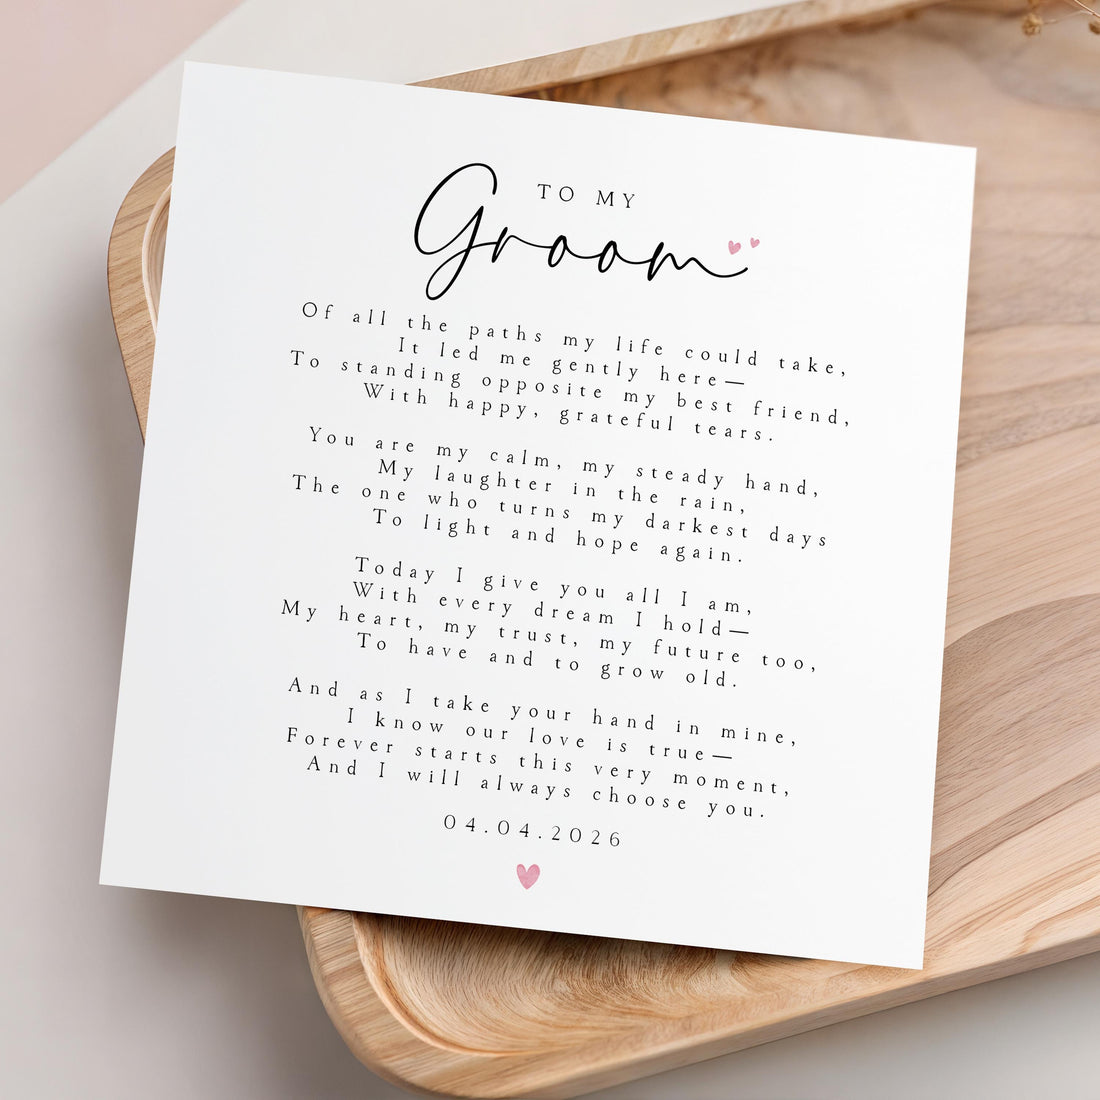 TO MY
Groom
Of all the paths my life could take,
It led me gently here—
To standing opposite my best friend,
With happy, grateful tears.
You are my calm, my steady hand,
My laughter in the rain,
The one who turns my darkest days
To light and hope again.
Today I give you all I am,
With every dream I hold—
My heart, my trust, my future too,
To have and to grow old.
And as I take your hand in mine,
I know our love is true—
Forever starts this very moment,
And I will always choose you.
04.04.2026